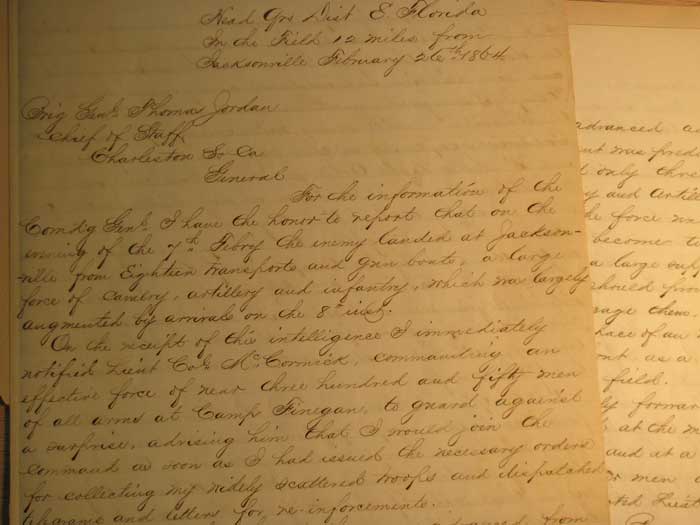 Head Qrs Dist E. Florida
In the Field 12 miles from
Jacksonville February 26th 1864
Brig Genl. Thomas Jordan
Chief of Staff
Charleston So Ca
General
For the information of the
Comdg Genl. I have the honor to report that on the
evening of the 7th Febry the enemy landed at Jackson-
ville from Eighteen transports and gun boats, a large
force of cavalry, artillery and infantry, which was largely
augmented by arrivals on the 8th inst.
On the receipt of this intelligence I immediately
notified Lieut Col. McCormick, commanding an
effective force of near three hundred and fifty men
of all arms at Camp Finegan, to guard against
a surprise, advising him that I would join the
command as soon as I had issued the necessary orders
for collecting my widely scattered troops and dispatched
telegrams and letters for re-inforcements.
advanced from
advanced a
was pred
only thre
and artill
the force
become t
a large
should
them.
place of an
as a
field.
forward
at the m
and at a
men